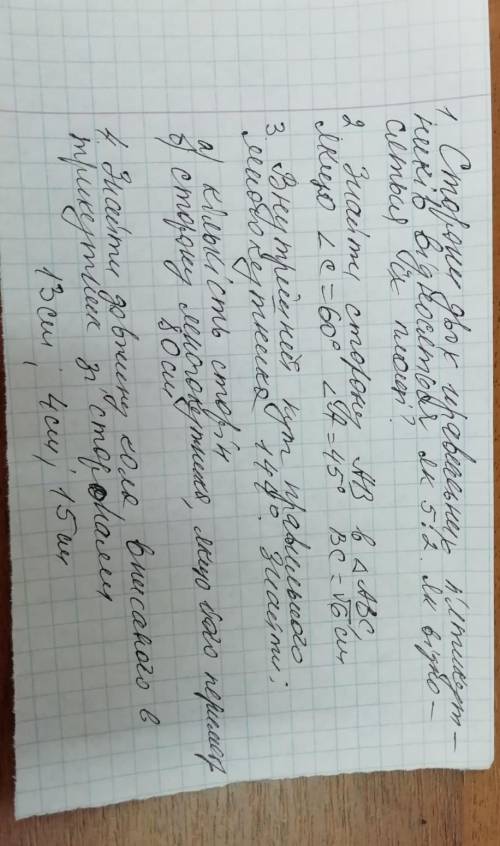 1 Сторони двох правильних п'ятикут-
ників відносяться як 5:2. Як відно-
сяться їх площі?
2 Знайти сторону АВ в △ АВС,
якщо ∠C = 60° ∠A = 45° BC = √6 см
3. Внутрішній кут правильного
многокутника 144°. Знайти:
а) кількість сторін
б) сторону многокутника, якщо його периметр
80 см
4. Знайти довжину кола, вписаного в
трикутник зі сторонами
13 см; 4 см; 15 см